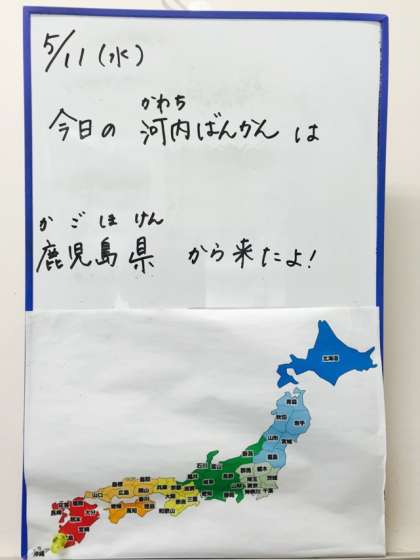 5/11(水)
かわち
今日の 河内ばんかん は
かごしまけん
鹿児島県 から来たよ!
北海道
青森
秋田 岩手
山形 宮城
福島
新潟
石川 富山
群馬 栃木
長野
埼玉 茨城
東京
神奈川 千葉
福井
岐阜
山梨
愛知 静岡
島根 鳥取
兵庫 京都 滋賀
山口 広島 岡山
大阪 奈良 三重
和歌山
香川
愛媛 徳島
高知
福岡
佐賀 大分
長崎 熊本
宮崎
沖縄